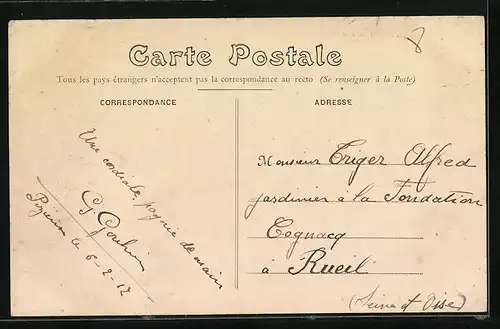 Carte Postale
Tous les pays étrangers n'acceptent pas la correspondance au recto (Se renseigner à la Poste)
CORRESPONDANCE
Une cordiale poignée de main
G Goulin
le 6-2-12
ADRESSE
Monsieur Triger Alfred
jardinier à la Fondation
Cognacq
à Rueil
(Seine et Oise)
8